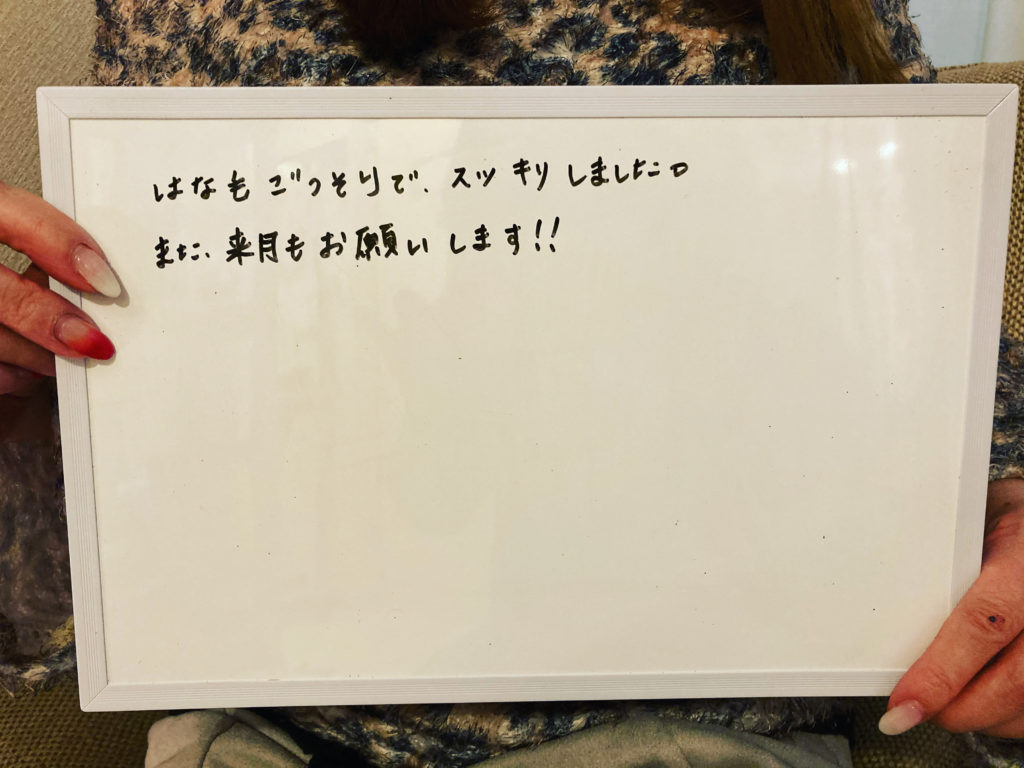 はなもごっそりで、スッキリしました。
また、来月もお願いします!!